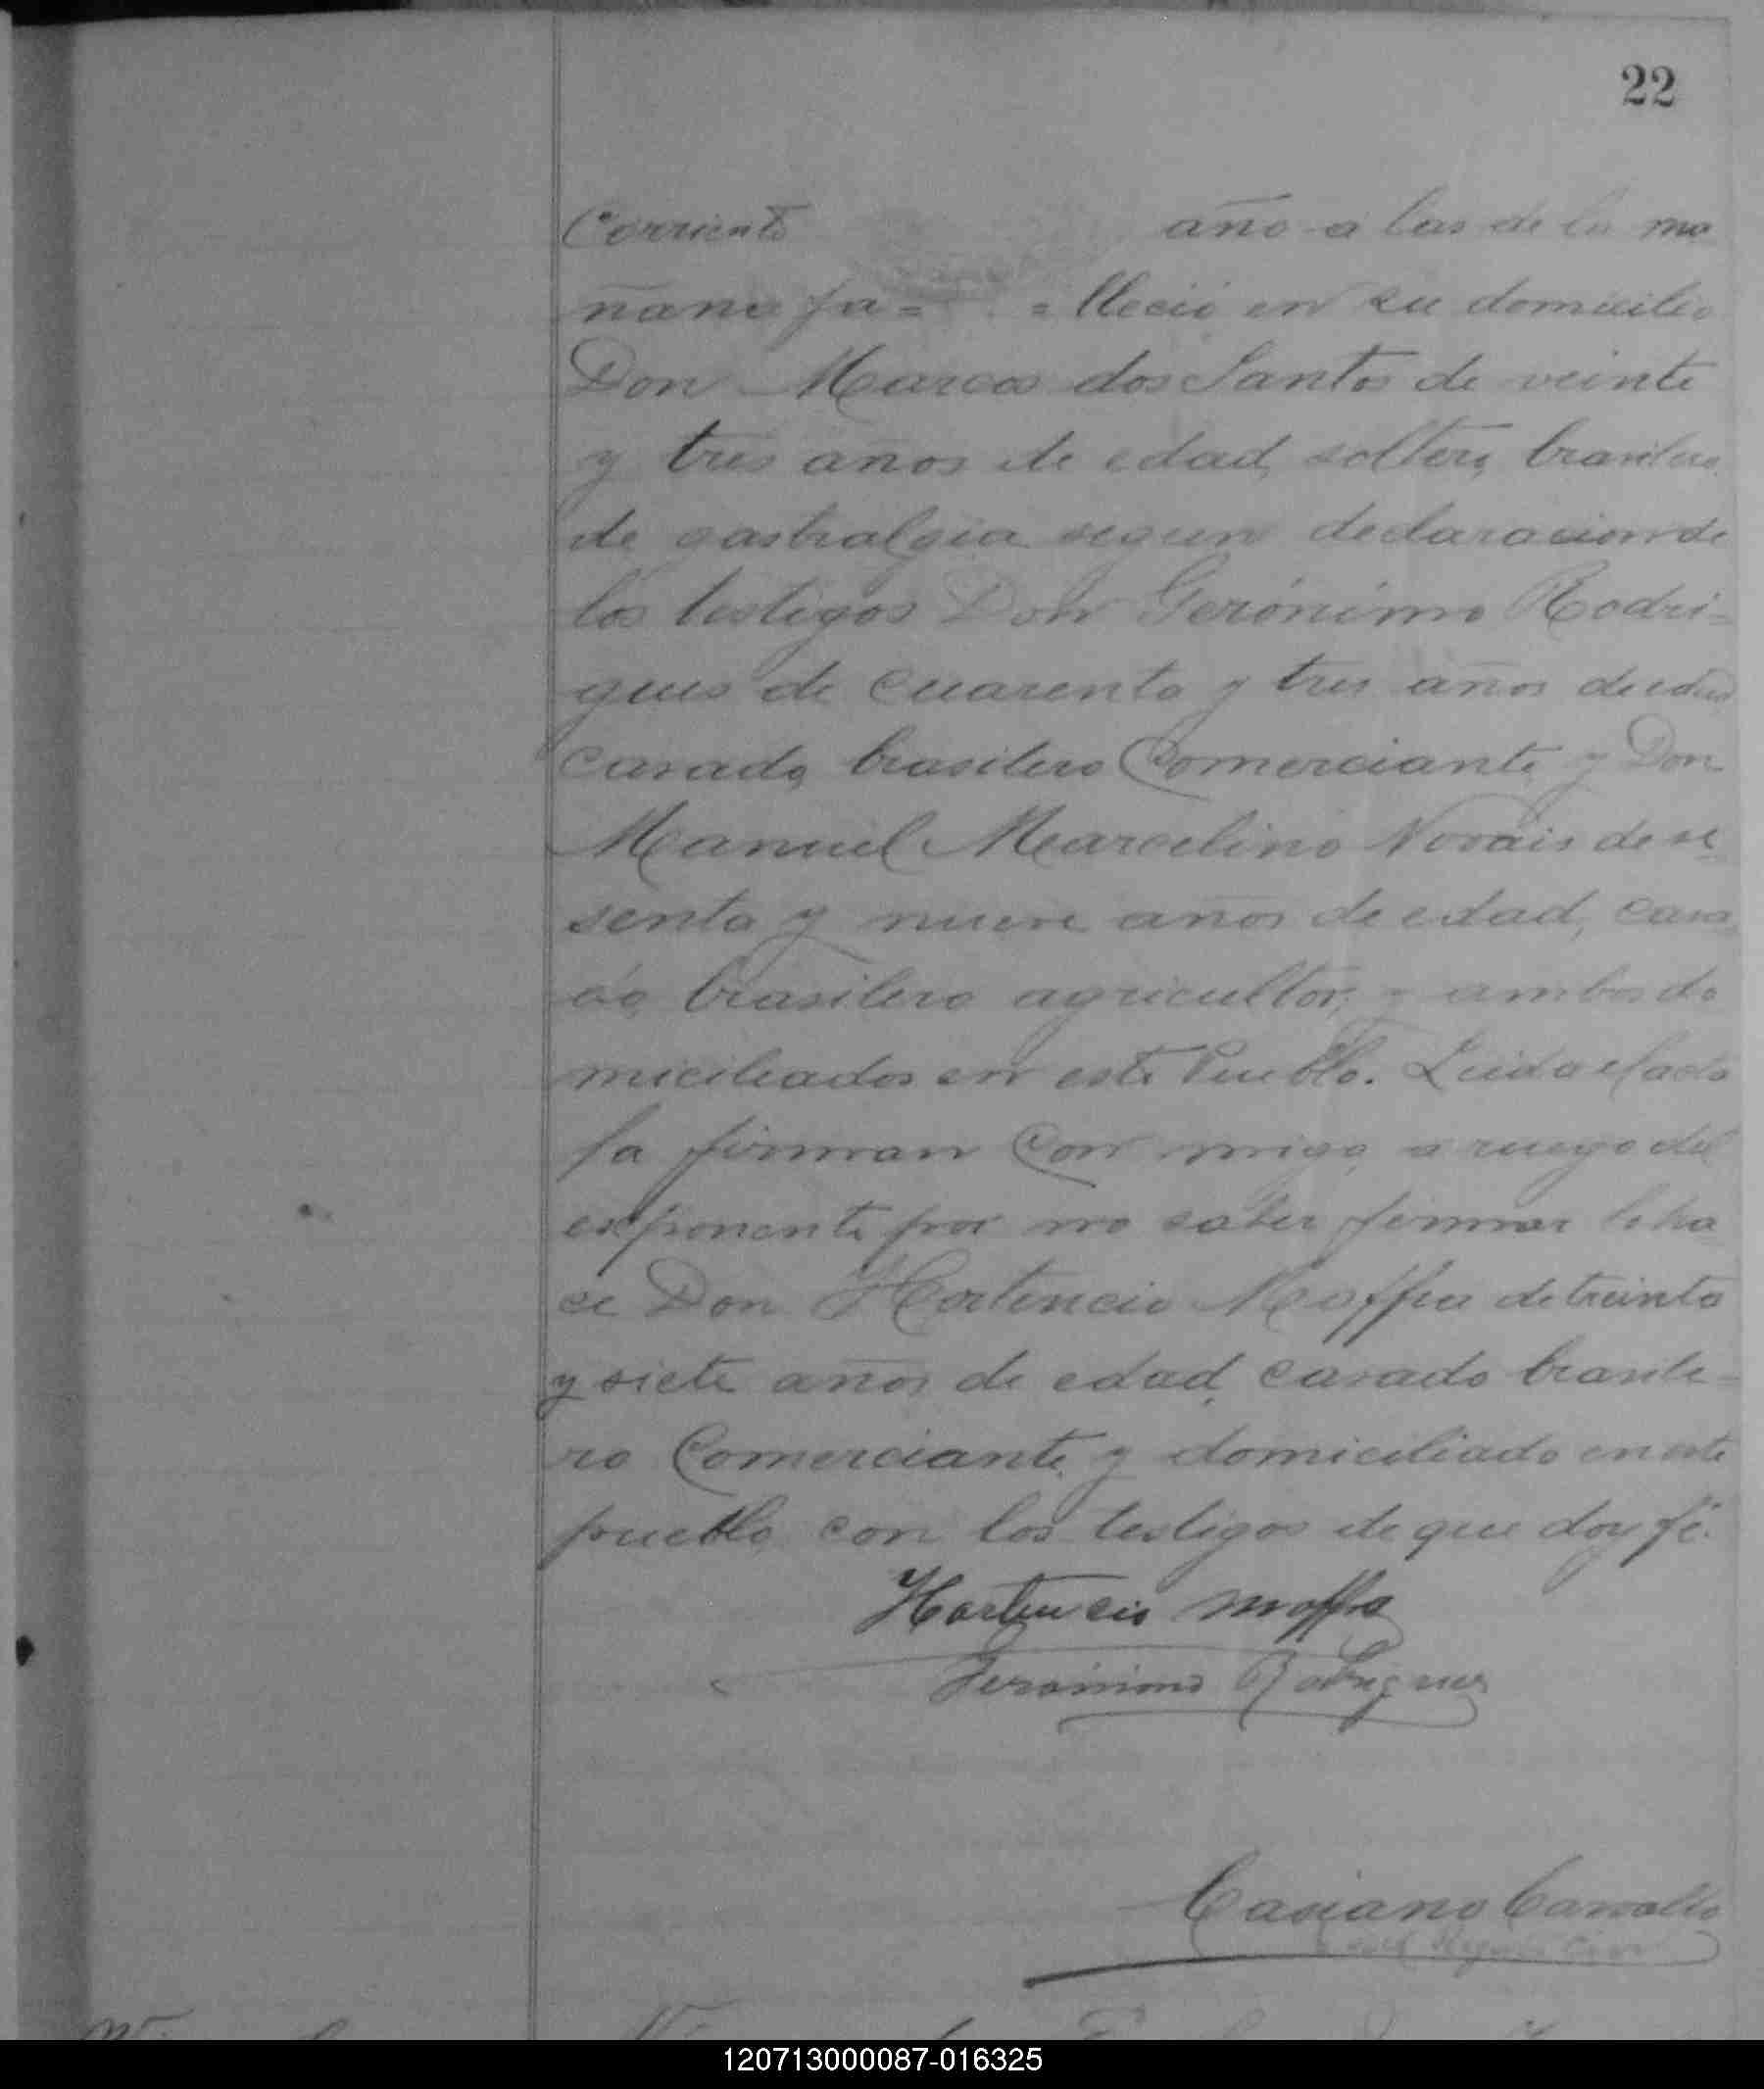 22
Corriente año a las de la ma
ñana fa= =lleció en su domicilio
Don Marcos dos Santos de veinte
y tres años de edad, soltero, brasilero,
de gastralgia segun declaracion de
los testigos Don Gerónimo Rodri-
gues de cuarenta y tres años de edad
casado, brasilero Comerciante, y Don
Manuel Marcelino Novais de se
senta y nueve años de edad, casa
do, brasilero agricultor, y ambos do
miciliados en este Pueblo. Leida el acta
la firman Con migo, a ruego del
exponente por no saber firmar lo ha
ce Don Hortencio Maffra de treinta
y siete años de edad, casado brasile-
ro Comerciante, y domiciliado en este
pueblo, con los testigos de que doy fé.
Hortencio Maffra
Jeronimo Rodrigues
Casiano Carvallo
120713000087-016325